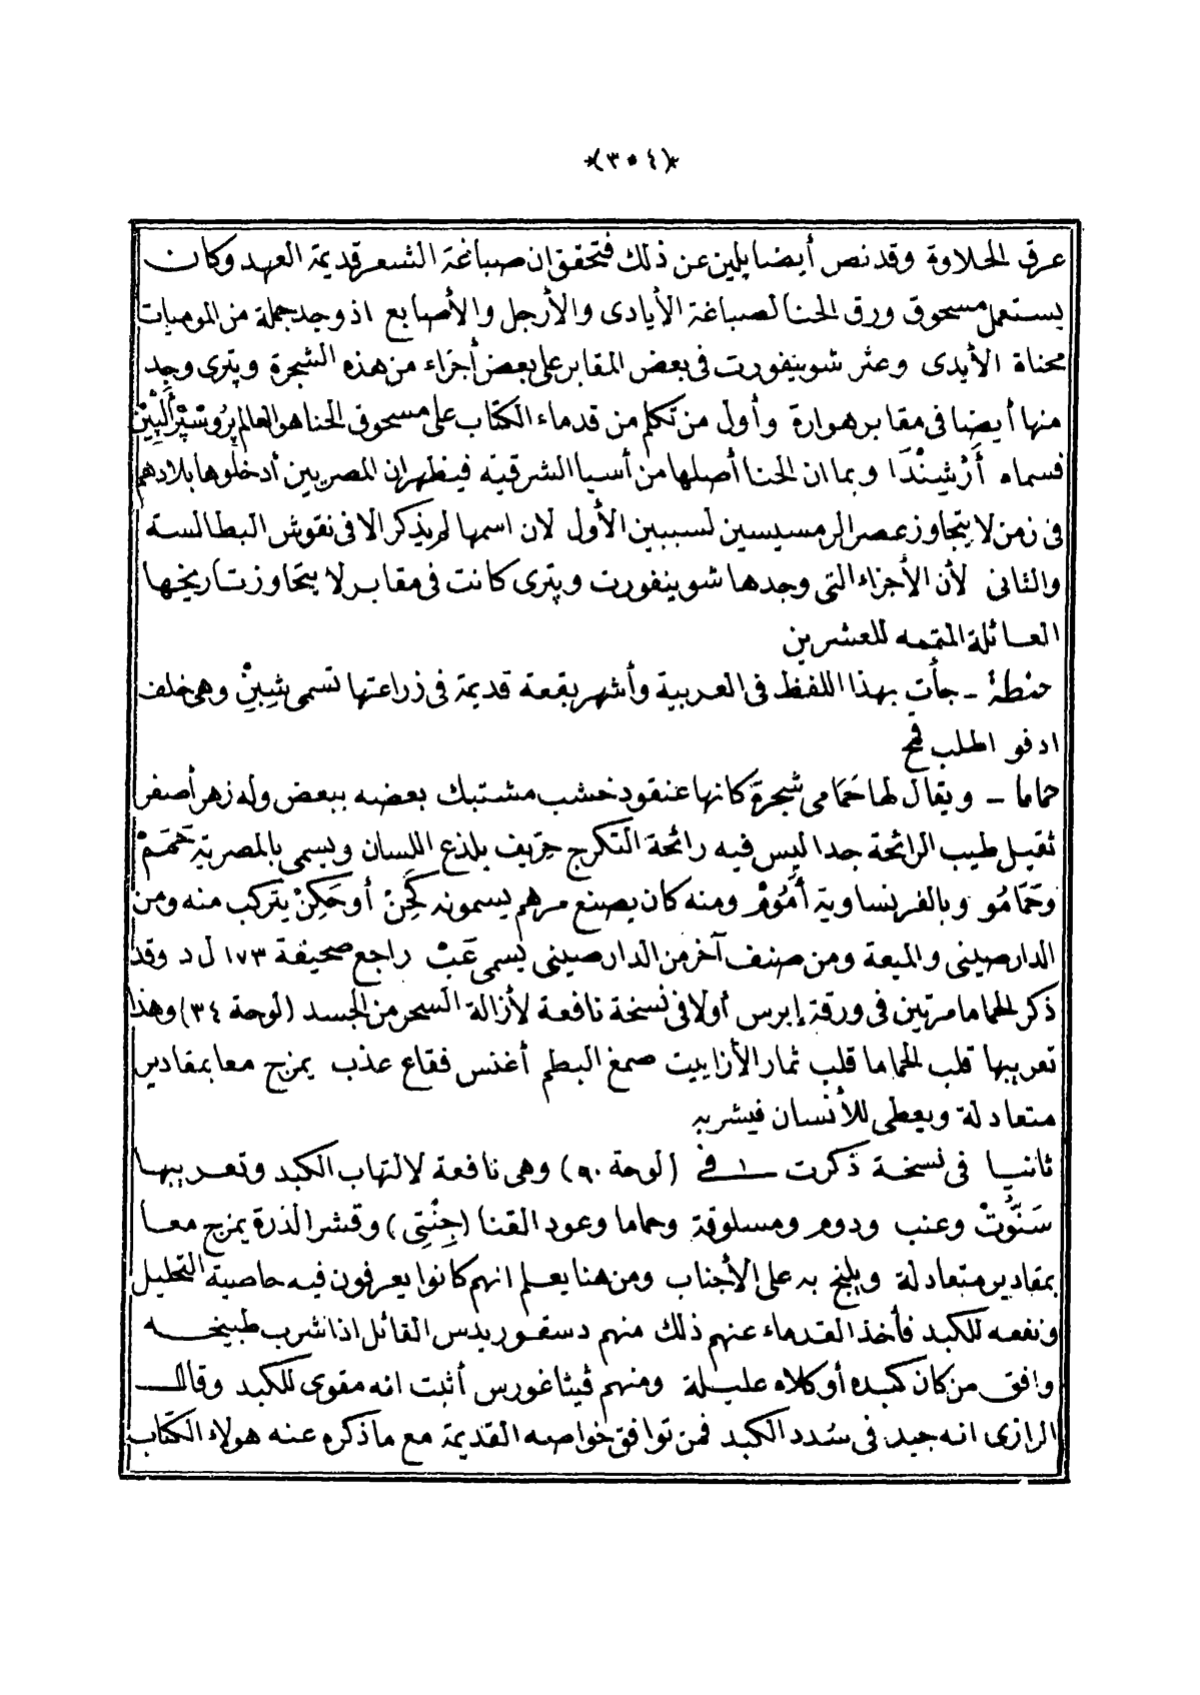 *(٣٥٤)*
عرق الحلاوة وقد نص أيضا پلين عن ذلك فتحقق ان صباغة الشعر قديمة العهد وكان
يستعمل مسحوق ورق الحنا لصباغة الأيادى والأرجل والأصابع اذ وجد جملة من الموميات
محناة الأيدى وعثر شوينفورت فى بعض المقابر على بعض أجزاء من هذه الشجرة وپترى وجد
منها أيضا فى مقابر هوارة وأول من تكلم من قدماء الكتاب على مسحوق الحنا هو العالم پروسپير ألپين
فسماه أَرْشِينْدَا وبما ان الحنا أصلها من أسيا الشرقية فيظهر ان المصريين أدخلوها بلادهم
فى زمن لا يتجاوز عصر الرمسيسين لسببين الأول لان اسمها لم يذكر الا فى نقوش البطالسة
والثانى لأن الأجزاء التى وجدها شوينفورت وپترى كانت فى مقابر لا يتجاوز تاريخها
العائلة المتممه للعشرين
حنطة ـ جأت بهذا اللفظ فى العربية وأشهر بقعة قديمة فى زراعتها تسمى بِثِينْ وهى خلف
ادفو اطلب قمح
حماما ـ ويقال لها حَمَامى شجرة كانها عنقود خشب مشتبك بعضه ببعض وله زهر أصفر
ثقيل طيب الرائحة جدا ليس فيه رائحة التكرج حِرّيف يلذع اللسان ويسمى بالمصرية حَمَمْ
وحَمَامُو وبالفرنساوية أَمُومْ ومنه كان يصنع مرهم يسمونه كَحِنْ أو حَكِنْ يتركب منه ومن
الدارصينى والميعة ومن صنف آخر من الدارصينى يسمى عَبْ راجع صحيفة ١٧٣ ل د وقد
ذكر الحماما مرتين فى ورقة إبرس أولا فى نسخة نافعة لأزالة السحر من الجسد (لوحة ٣٤) وهذا
تعريبها قلب الحماما قلب ثمار الأزاييت صمغ البطم أغنس فقاع عذب يمزج معا بمقادير
متعادلة ويعطى للأنسان فيشربه
ثانيا فى نسخة ذكرت فى (لوحة ٩٠) وهى نافعة لالتهاب الكبد وتعريبها
سَنُّوتْ وعنب ودوم ومسلوقة وحماما وعود القنا (جِنْتِى) وقشر الذرة يمزج معا
بمقادير متعادلة ويلبخ به على الأجناب ومن هنا يعلم انهم كانوا يعرفون فيه خاصية التحليل
ونفعه للكبد فأخذ القدماء عنهم ذلك منهم دسقوريدس القائل اذا شرب طبيخه
وافق من كان كبده أو كلاه عليلة ومنهم ڤيثاغورس أثبت انه مقوى للكبد وقال
الرازى انه جيد فى سُدد الكبد فمن توافق خواصه القديمة مع ما ذكره عنه هولاء الكتاب